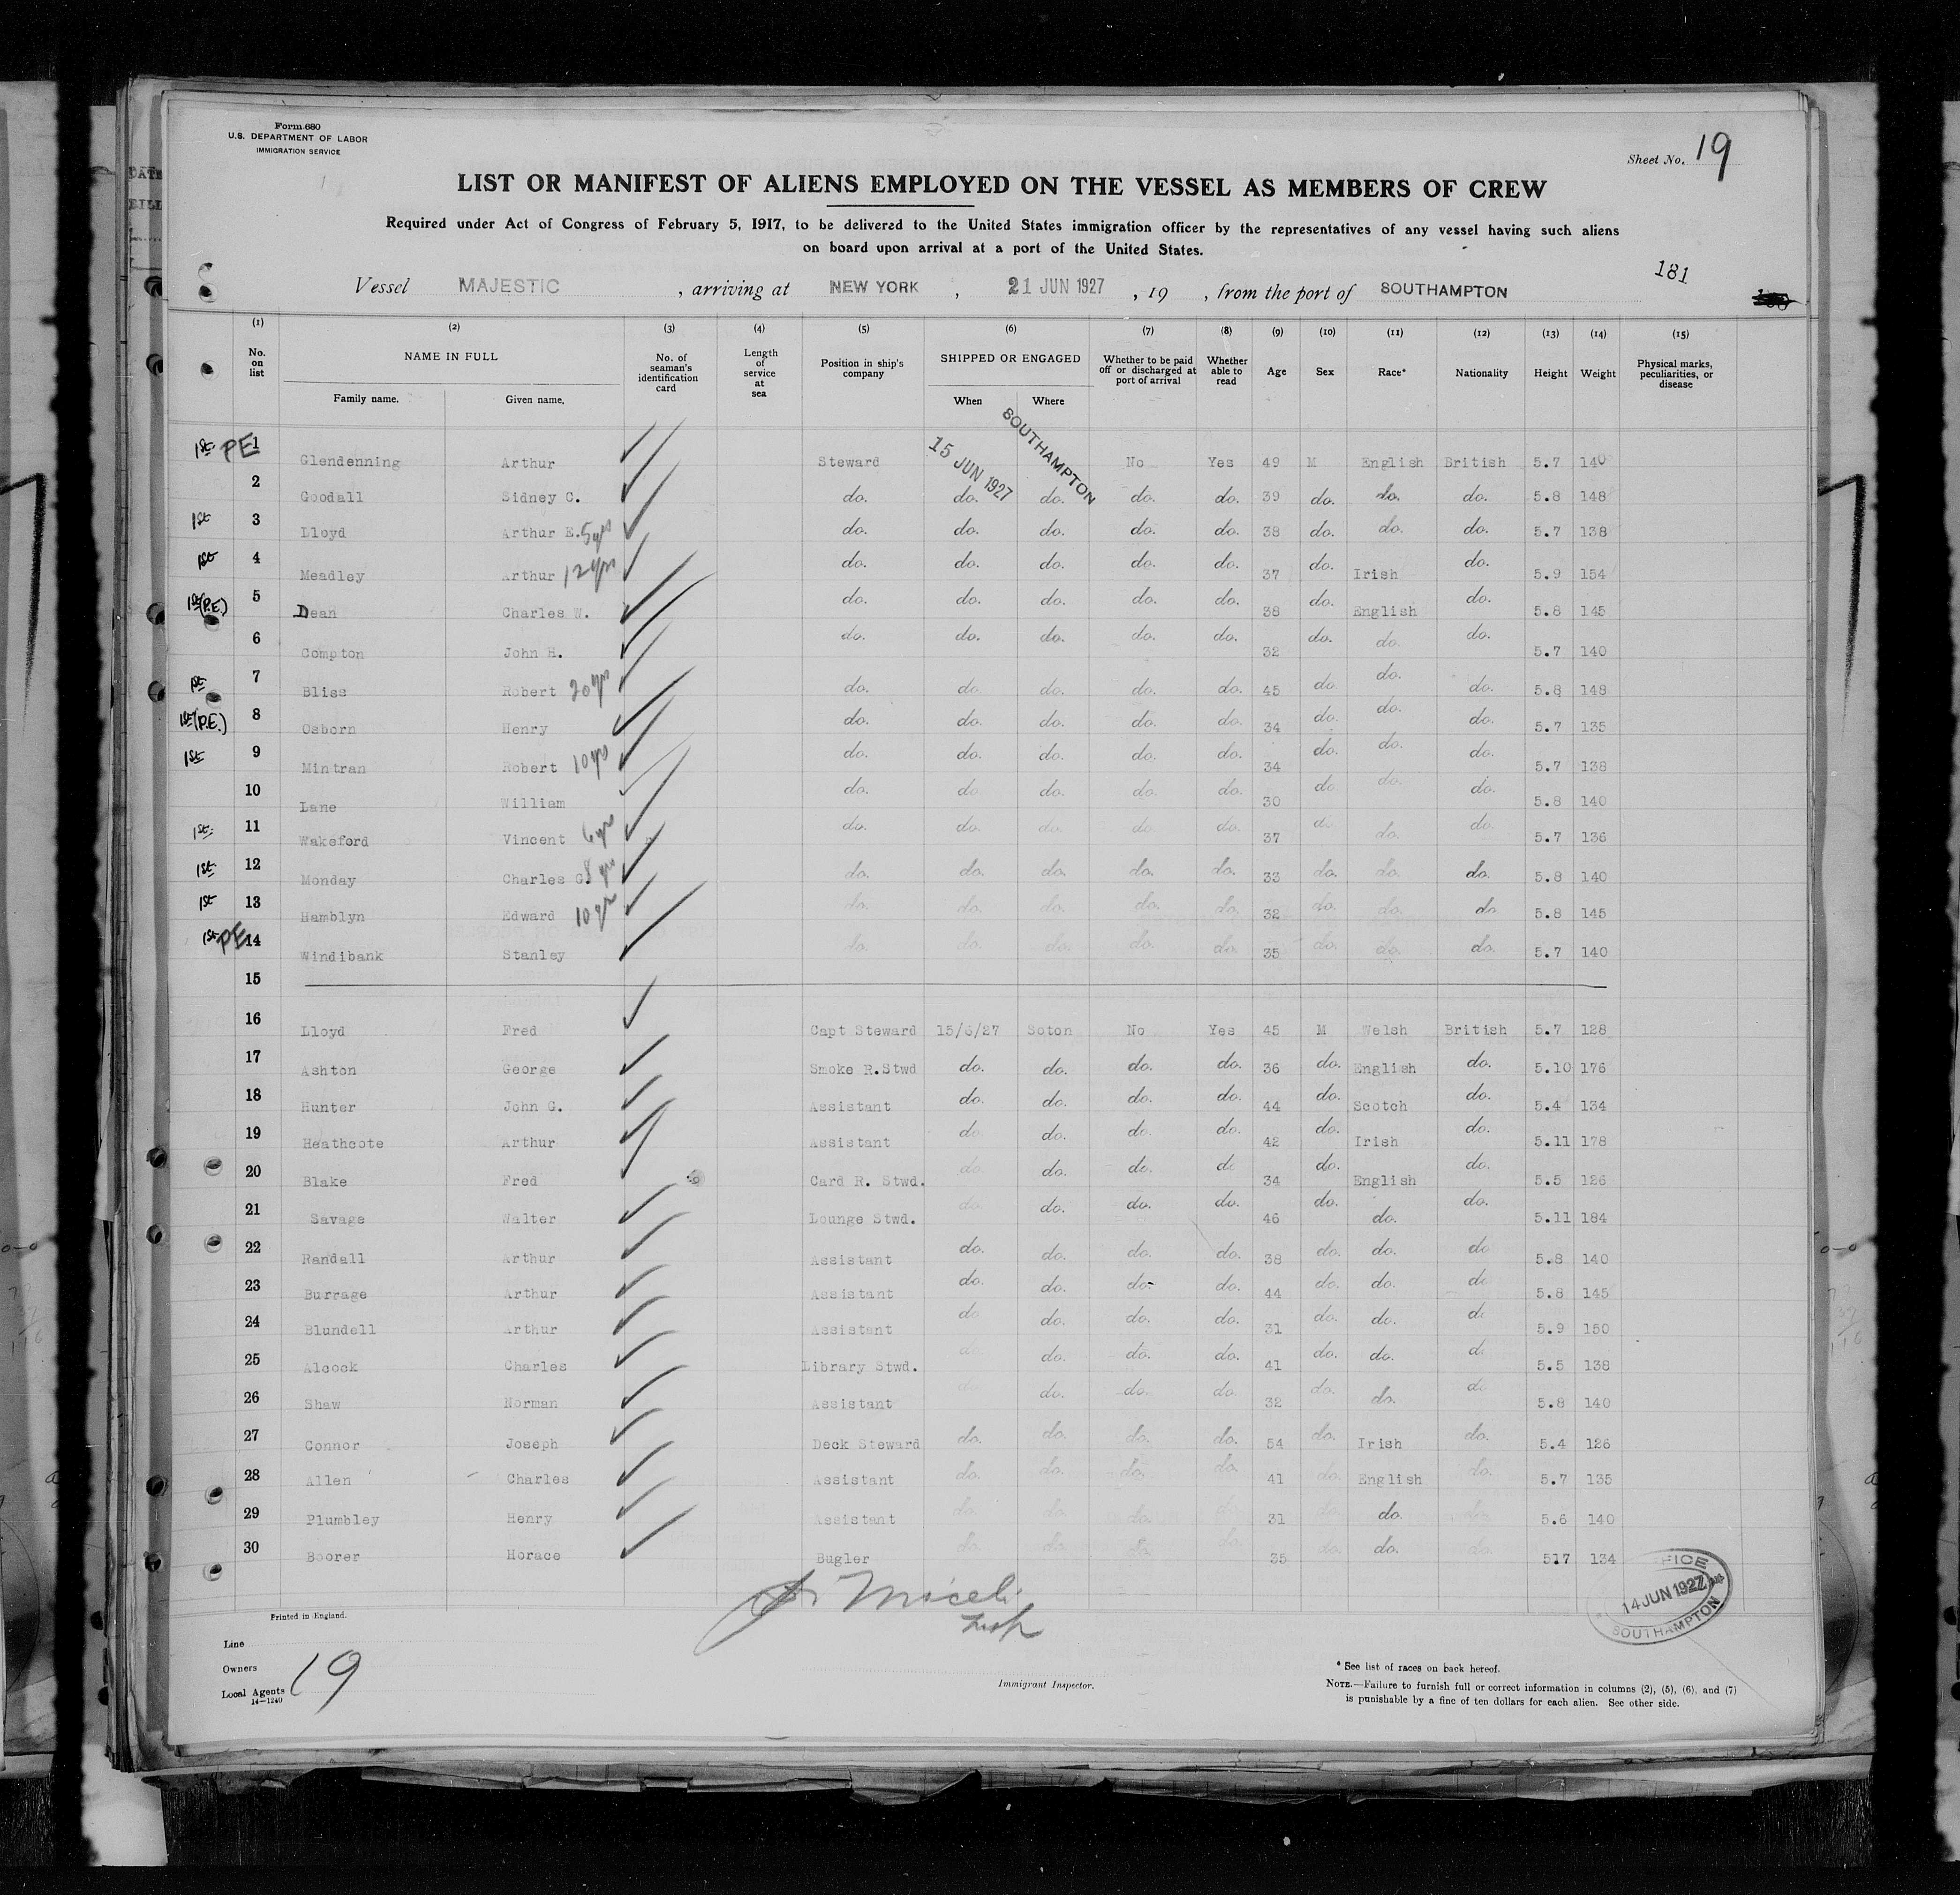 Form 680
U.S. DEPARTMENT OF LABOR
IMMIGRATION SERVICE
Sheet No. 19
LIST OR MANIFEST OF ALIENS EMPLOYED ON THE VESSEL AS MEMBERS OF CREW
Required under Act of Congress of February 5, 1917, to be delivered to the United States immigration officer by the representatives of any vessel having such aliens
on board upon arrival at a port of the United States.
181
Vessel MAJESTIC , arriving at NEW YORK , 21 JUN 1927 , 19 , from the port of SOUTHAMPTON
(1) (2) (3) (4) (5) (6) (7) (8) (9) (10) (11) (12) (13) (14) (15)
No. on list NAME IN FULL Family name. Given name. No. of seaman's identification card Length of service at sea Position in ship's company SHIPPED OR ENGAGED When Where Whether to be paid off or discharged at port of arrival Whether able to read Age Sex Race* Nationality Height Weight Physical marks, peculiarities, or disease
15 JUN 1927 SOUTHAMPTON
1st PE 1 Glendenning Arthur Steward No Yes 49 M English British 5.7 140
2 Goodall Sidney C. do. do. do. do. do. 39 do. do. do. 5.8 148
1st 3 Lloyd Arthur E. 5yrs do. do. do. do. do. 38 do. do. do. 5.7 138
1st 4 Meadley Arthur 12yrs do. do. do. do. do. 37 do. Irish do. 5.9 154
1st (P.E.) 5 Dean Charles W. do. do. do. do. do. 38 do. English do. 5.8 145
6 Compton John H. do. do. do. do. do. 32 do. do. do. 5.7 140
1st 7 Bliss Robert 20yrs do. do. do. do. do. 45 do. do. do. 5.8 148
1st (P.E.) 8 Osborn Henry do. do. do. do. do. 34 do. do. do. 5.7 135
1st 9 Mintran Robert 10yrs do. do. do. do. do. 34 do. do. do. 5.7 138
10 Lane William do. do. do. do. do. 30 do. do. do. 5.8 140
1st 11 Wakeford Vincent 6yrs do. do. do. do. do. 37 do. do. do. 5.7 136
1st 12 Monday Charles G. 8yrs do. do. do. do. do. 33 do. do. do. 5.8 140
1st 13 Hamblyn Edward 10yrs do. do. do. do. do. 32 do. do. do 5.8 145
1st PE 14 Windibank Stanley do. do. do. do. do 35 do. do. do. 5.7 140
15
16 Lloyd Fred Capt Steward 15/6/27 Soton No Yes 45 M Welsh British 5.7 128
17 Ashton George Smoke R.Stwd do. do. do. do. 36 do. English do. 5.10 176
18 Hunter John G. Assistant do. do. do. do. 44 do. Scotch do. 5.4 134
19 Heathcote Arthur Assistant do. do. do. do. 42 do. Irish do. 5.11 178
20 Blake Fred Card R. Stwd. do. do. do. do 34 do. English do. 5.5 126
21 Savage Walter Lounge Stwd. do. do. do. do. 46 do. do. do. 5.11 184
22 Randall Arthur Assistant do. do. do. do. 38 do. do. do 5.8 140
23 Burrage Arthur Assistant do. do. do. do. 44 do. do. do 5.8 145
24 Blundell Arthur Assistant do do. do. do. 31 do. do. do 5.9 150
25 Alcock Charles Library Stwd. do do. do. do. 41 do. do. do 5.5 138
26 Shaw Norman Assistant do do. do. do. 32 do. do. do 5.8 140
27 Connor Joseph Deck Steward do. do. do. do. 54 do. Irish do. 5.4 126
28 Allen Charles Assistant do. do. do. do. 41 do. English do. 5.7 135
29 Plumbley Henry Assistant do. do. do. do. 31 do. do. do. 5.6 140
30 Boorer Horace Bugler do. do. do. do. 35 do. do. do. 517 134
14 JUN 1927
SOUTHAMPTON
Miceli
Insp
Printed in England.
Line
Owners
Local Agents
14—1240
19
Immigrant Inspector.
* See list of races on back hereof.
NOTE.—Failure to furnish full or correct information in columns (2), (5), (6), and (7)
is punishable by a fine of ten dollars for each alien. See other side.